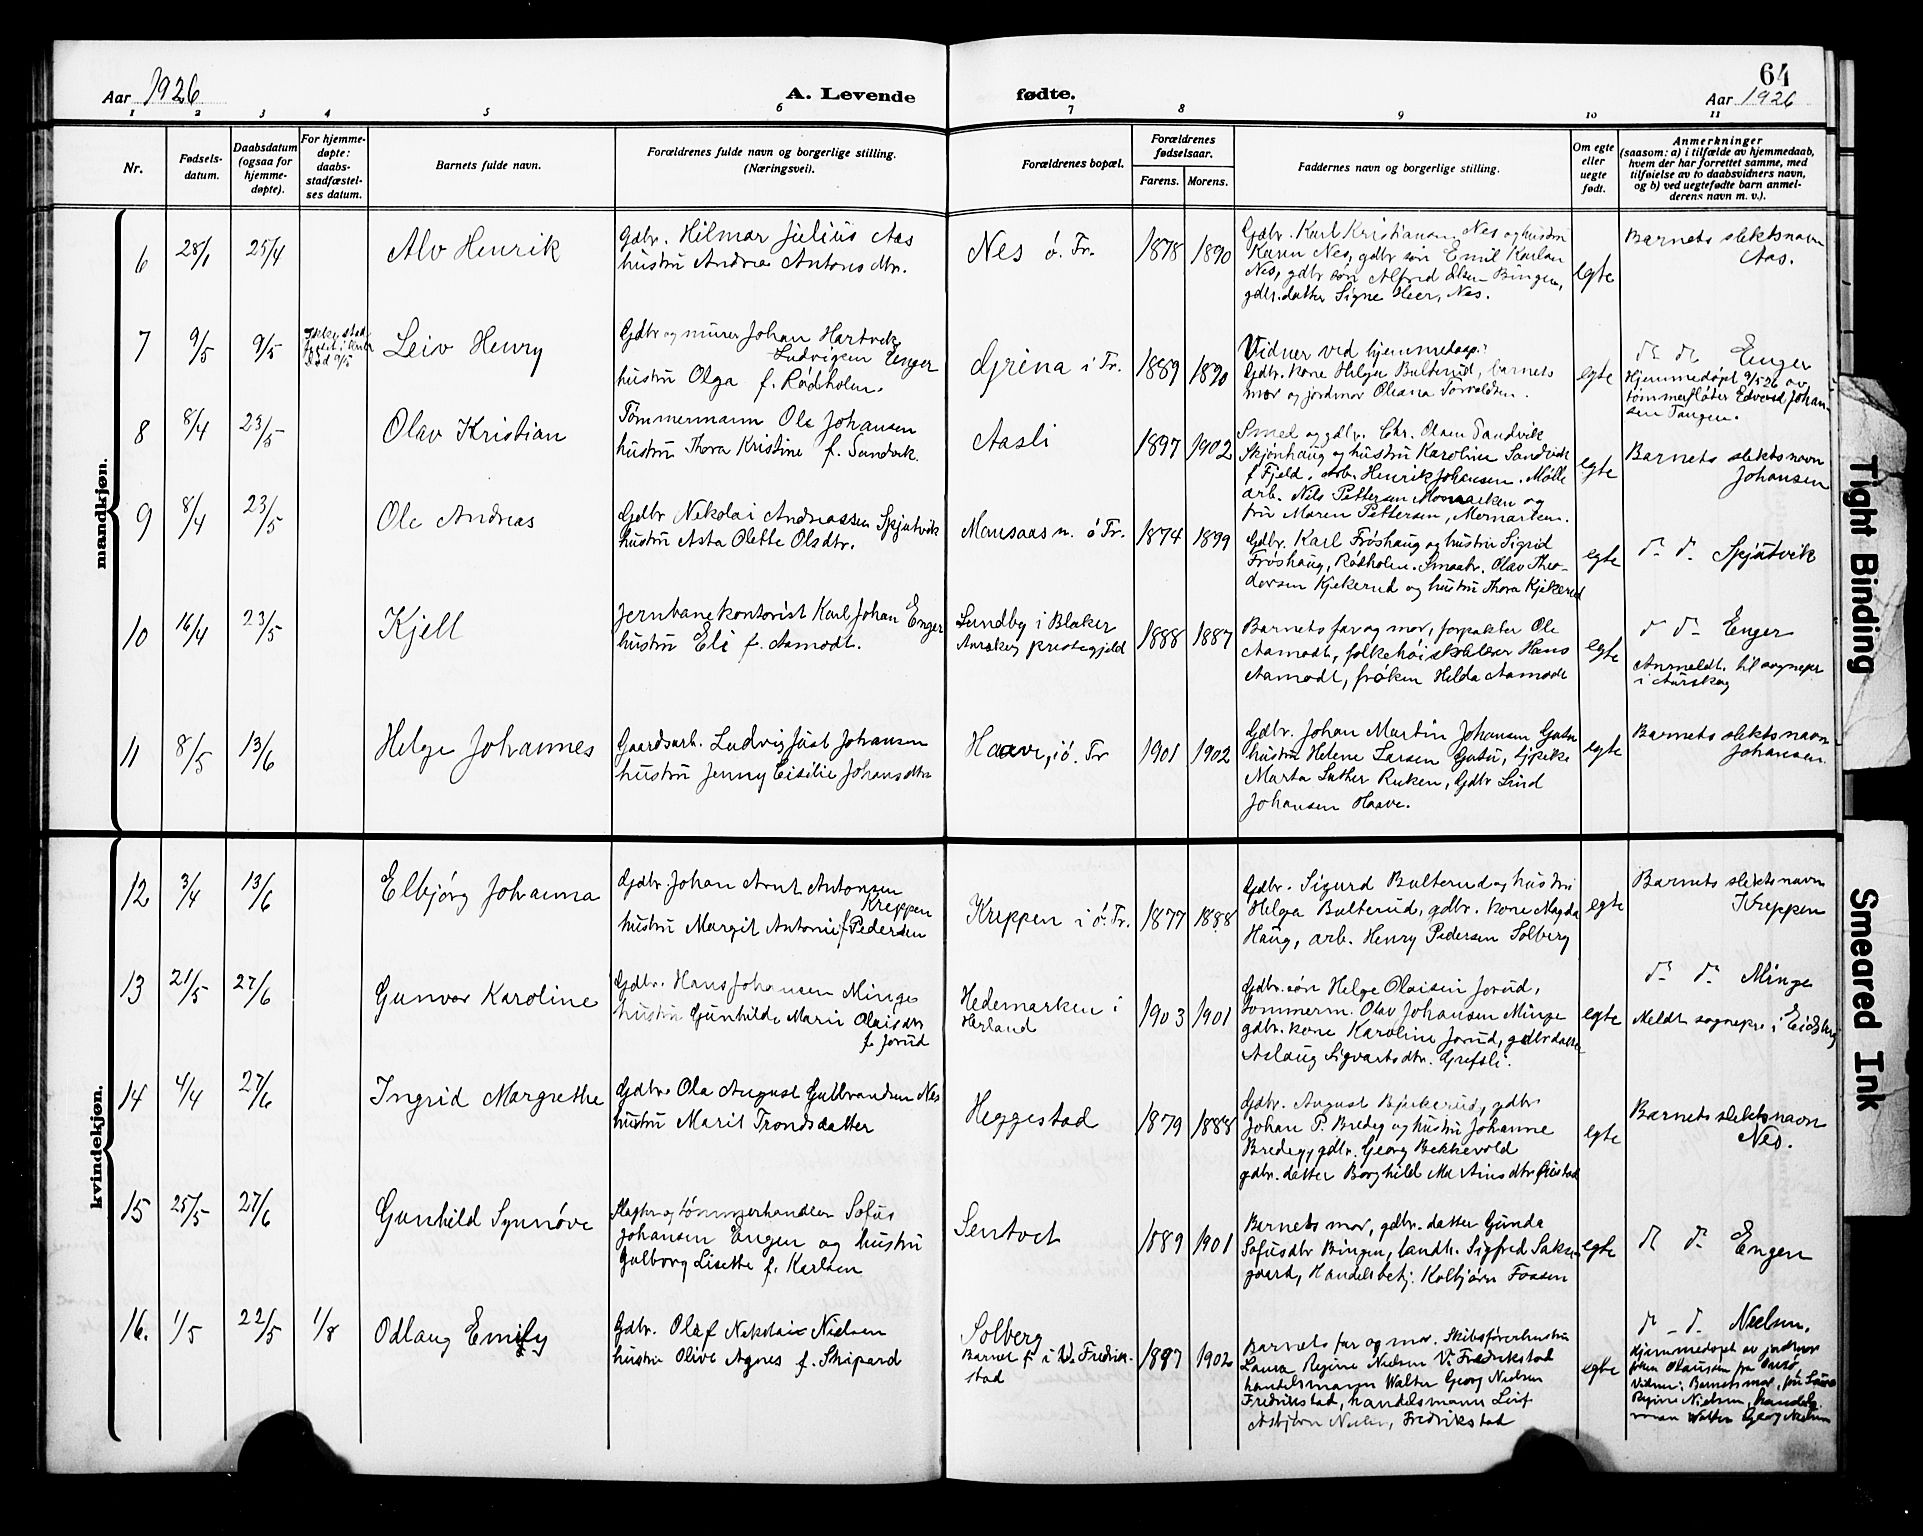 64
Aar 1926
A. Levende
fødte.
Aar 1926
1 2 3 4 5 6 7 8 9 10 11
Nr.
Fødsels-
datum.
Daabsdatum
(ogsaa for
hjemme-
døpte).
For hjemme-
døpte:
daabs-
stadfæstel-
ses datum.
Barnets fulde navn.
Forældrenes fulde navn og borgerlige stilling.
(Næringsvei).
Forældrenes bopæl.
Forældrenes
fødselsaar.
Farens. Morens.
Faddernes navn og borgerlige stilling.
Om egte
eller
uegte
født.
Anmerkninger
(saasom: a) i tilfælde av hjemmedaab,
hvem der har forrettet samme, med
tilføielse av to daabsvidners navn,
og b) ved uegtefødte barn anmel-
derens navn m. v.).
mandkjøn.
6
28/1
25/4
Alv Henrik
Gdbr. Hilmar Julius Aas
hustru Andrea Antonsdtr.
Nes ö. Tr.
1878
1890
Gdbr. Karl Kristiansen Nes og hustru
Karen Nes, gdbr søn Emil Karlsen
Nes, gdbr søn Alfred Olsen Bingen,
gdbr. datter Signe Heer, Nes.
egte
Barnets slektsnavn
Aas.
7
9/5
9/5
Leiv Henry
Gdbr og murer Johan Hartvik
Ludvigsen Enger
hustru Olga f. Rødholm.
Grina i Tr.
1889
1890
Vidner ved hjemmedaap:
Gdbr. kone Helga Bulterud, barnets
mor og jordmor Oleana Torvaldsen.
egte
d. d. Enger
Hjemmedøpt 9/5 26 av
tømmerfløter Edvard Johan-
sen Tangen.
8
8/4
23/5
Olav Kristian
Tømmermann Ole Johansen
hustru Thora Kristine f. Sandvik.
Aasli
1897
1902
Smed og gdbr. Chr. Olsen Sandvik
Skjønhaug og hustru Karoline Sandvik
f. Fjeld, arb. Henrik Johansen. Mölle
arb. Nils Pettersen Momarken og
fru Maren Pettersen, Momarken.
egte
Barnets slektsnavn
Johansen
9
8/4
23/5
Ole Andreas
Gdbr Nekolai Andreassen Skjutvik
hustru Asta Olette Olsdtr.
Monsaas n. ö Tr.
1874
1899
Gdbr. Karl Frøshaug og hustru Sigrid
Frøshaug, Rødholen. Smaabr. Olav Theo-
dorsen Kjekerud og hustru Thora Kjekerud
egte
d. d. Skjutvik
10
16/4
23/5
Kjell
Jernbanekontorist Karl Johan Enger
hustru Eli f. Aamodt.
Sundby i Blaker
Aurskog prestegjeld
1888
1887
Barnets far og mor, forpakter Ole
Aamodt, folkehøiskolelærer Hans
Aamodt, frøken Helda Aamodt
egte
d d. Enger
Anmeldt til sognepr
i Aurskog
11
8/5
13/6
Helge Johannes
Gaardsarb. Ludvig Just Johansen
hustru Jenny Cisilie Johansdtr
Haave, i ö. Tr
1901
1902
Gdbr. Johan Martin Johansen Gutu
hustru Helene Larsen Gutu, pike
Marta Luther Ruken, Gdbr Lind
Johansen Haave.
egte
Barnets slektsnavn
Johansen.
kvindekjøn.
12
3/4
13/6
Elbjørg Johanna
Gdbr. Johan Arnt Antonsen
Kreppen
hustru Margit Antonie f. Pedersen
Kreppen i ö. Tr.
1877
1888
Gdbr. Sigurd Bulterud og hustru
Helga Bulterud, gdbr. kone Magda
Haug, arb. Henry Pedersen Solberg
egte
Barnets slektsnavn
Kreppen
13
21/5
27/6
Gunvor Karoline
Gdbr. Hans Johansen Minge
hustru Gunhilde Marie Olaisdtr
f. Jorud
Hedemarken i
Herland
1903
1901
Gdbr. søn Helge Olaisen Jorud,
tømmerm. Olav Johansen Minge
gdbr. kone Karoline Jorud, gdbr datter
Aslaug Sigvartsdtr. Grefsli.
egte
d. d. Minge
Meldt sognepr i Eidsberg
14
4/4
27/6
Ingrid Margrethe
Gdbr. Ola August Gulbrandsen Nes
hustru Marit Trondsdatter
Heggestad
1879
1888
Gdbr. August Bjerkerud, gdbr
Johan P. Bredeg og hustru Johanne
Bredeg, gdbr. Georg Bekkevold
gdbr. datter Borghild
egte
Barnets slektsnavn
Nes.
15
25/5
27/6
Gunhild Synnøve
Slagter og tømmerhandler Sofus
Johansen Engen og hustru
Gulborg Lisette f. Karlsen
Sentvet
1889
1901
Barnets mor, gdbr. datter Gunda
Sofusdtr Bingen, landh. Sigfred Saks-
gaard, Handelsbetj. Kolbjørn Fossen
egte
d. d. Engen
16.
1/5
22/5
1/8
Odlaug Emily
Gdbr. Olaf Nekolai Nielsen
hustru Olive Agnes f. Skipard
Solberg
Barnet f. i V. Fredrik-
stad
1897
1902
Barnets far og mor. Skibsførerhustru
Laura Regine Nielsen V. Fredrikstad
handelsmann Walter Georg Nielsen
Fredrikstad, handelsmann Leif
Asbjørn Nielsen, Fredrikstad
egte
d. d. Nielsen,
Hjemmedøpt av jordmor
frøken Olaussen fra Onsø
Vidner: Barnets mor, fru Laura
Regine Nielsen, handels-
mann Walter Georg Nielsen
Tight Binding
Smeared Ink